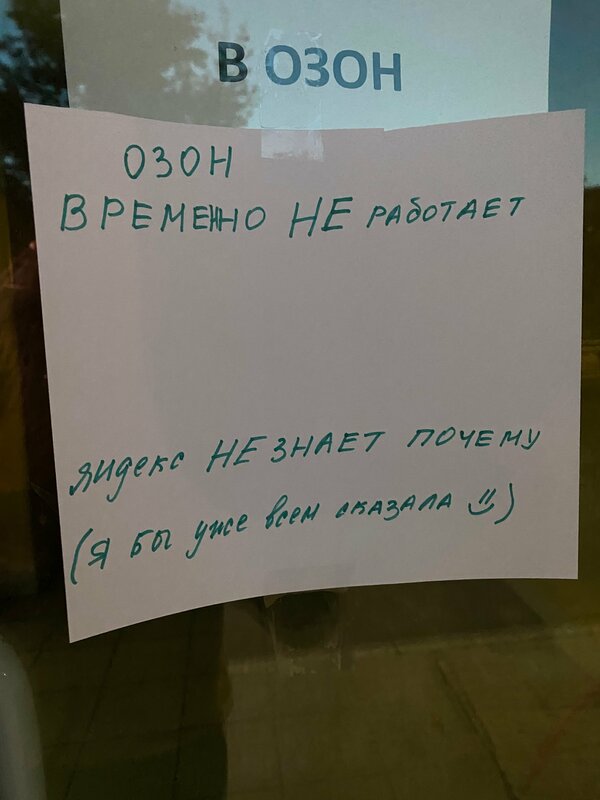 В ОЗОН
ОЗОН
ВРЕМЕННО НЕ РАБОТАЕТ
ЯНДЕКС НЕ ЗНАЕТ ПОЧЕМУ
(Я БЫ уже всем сказала :))